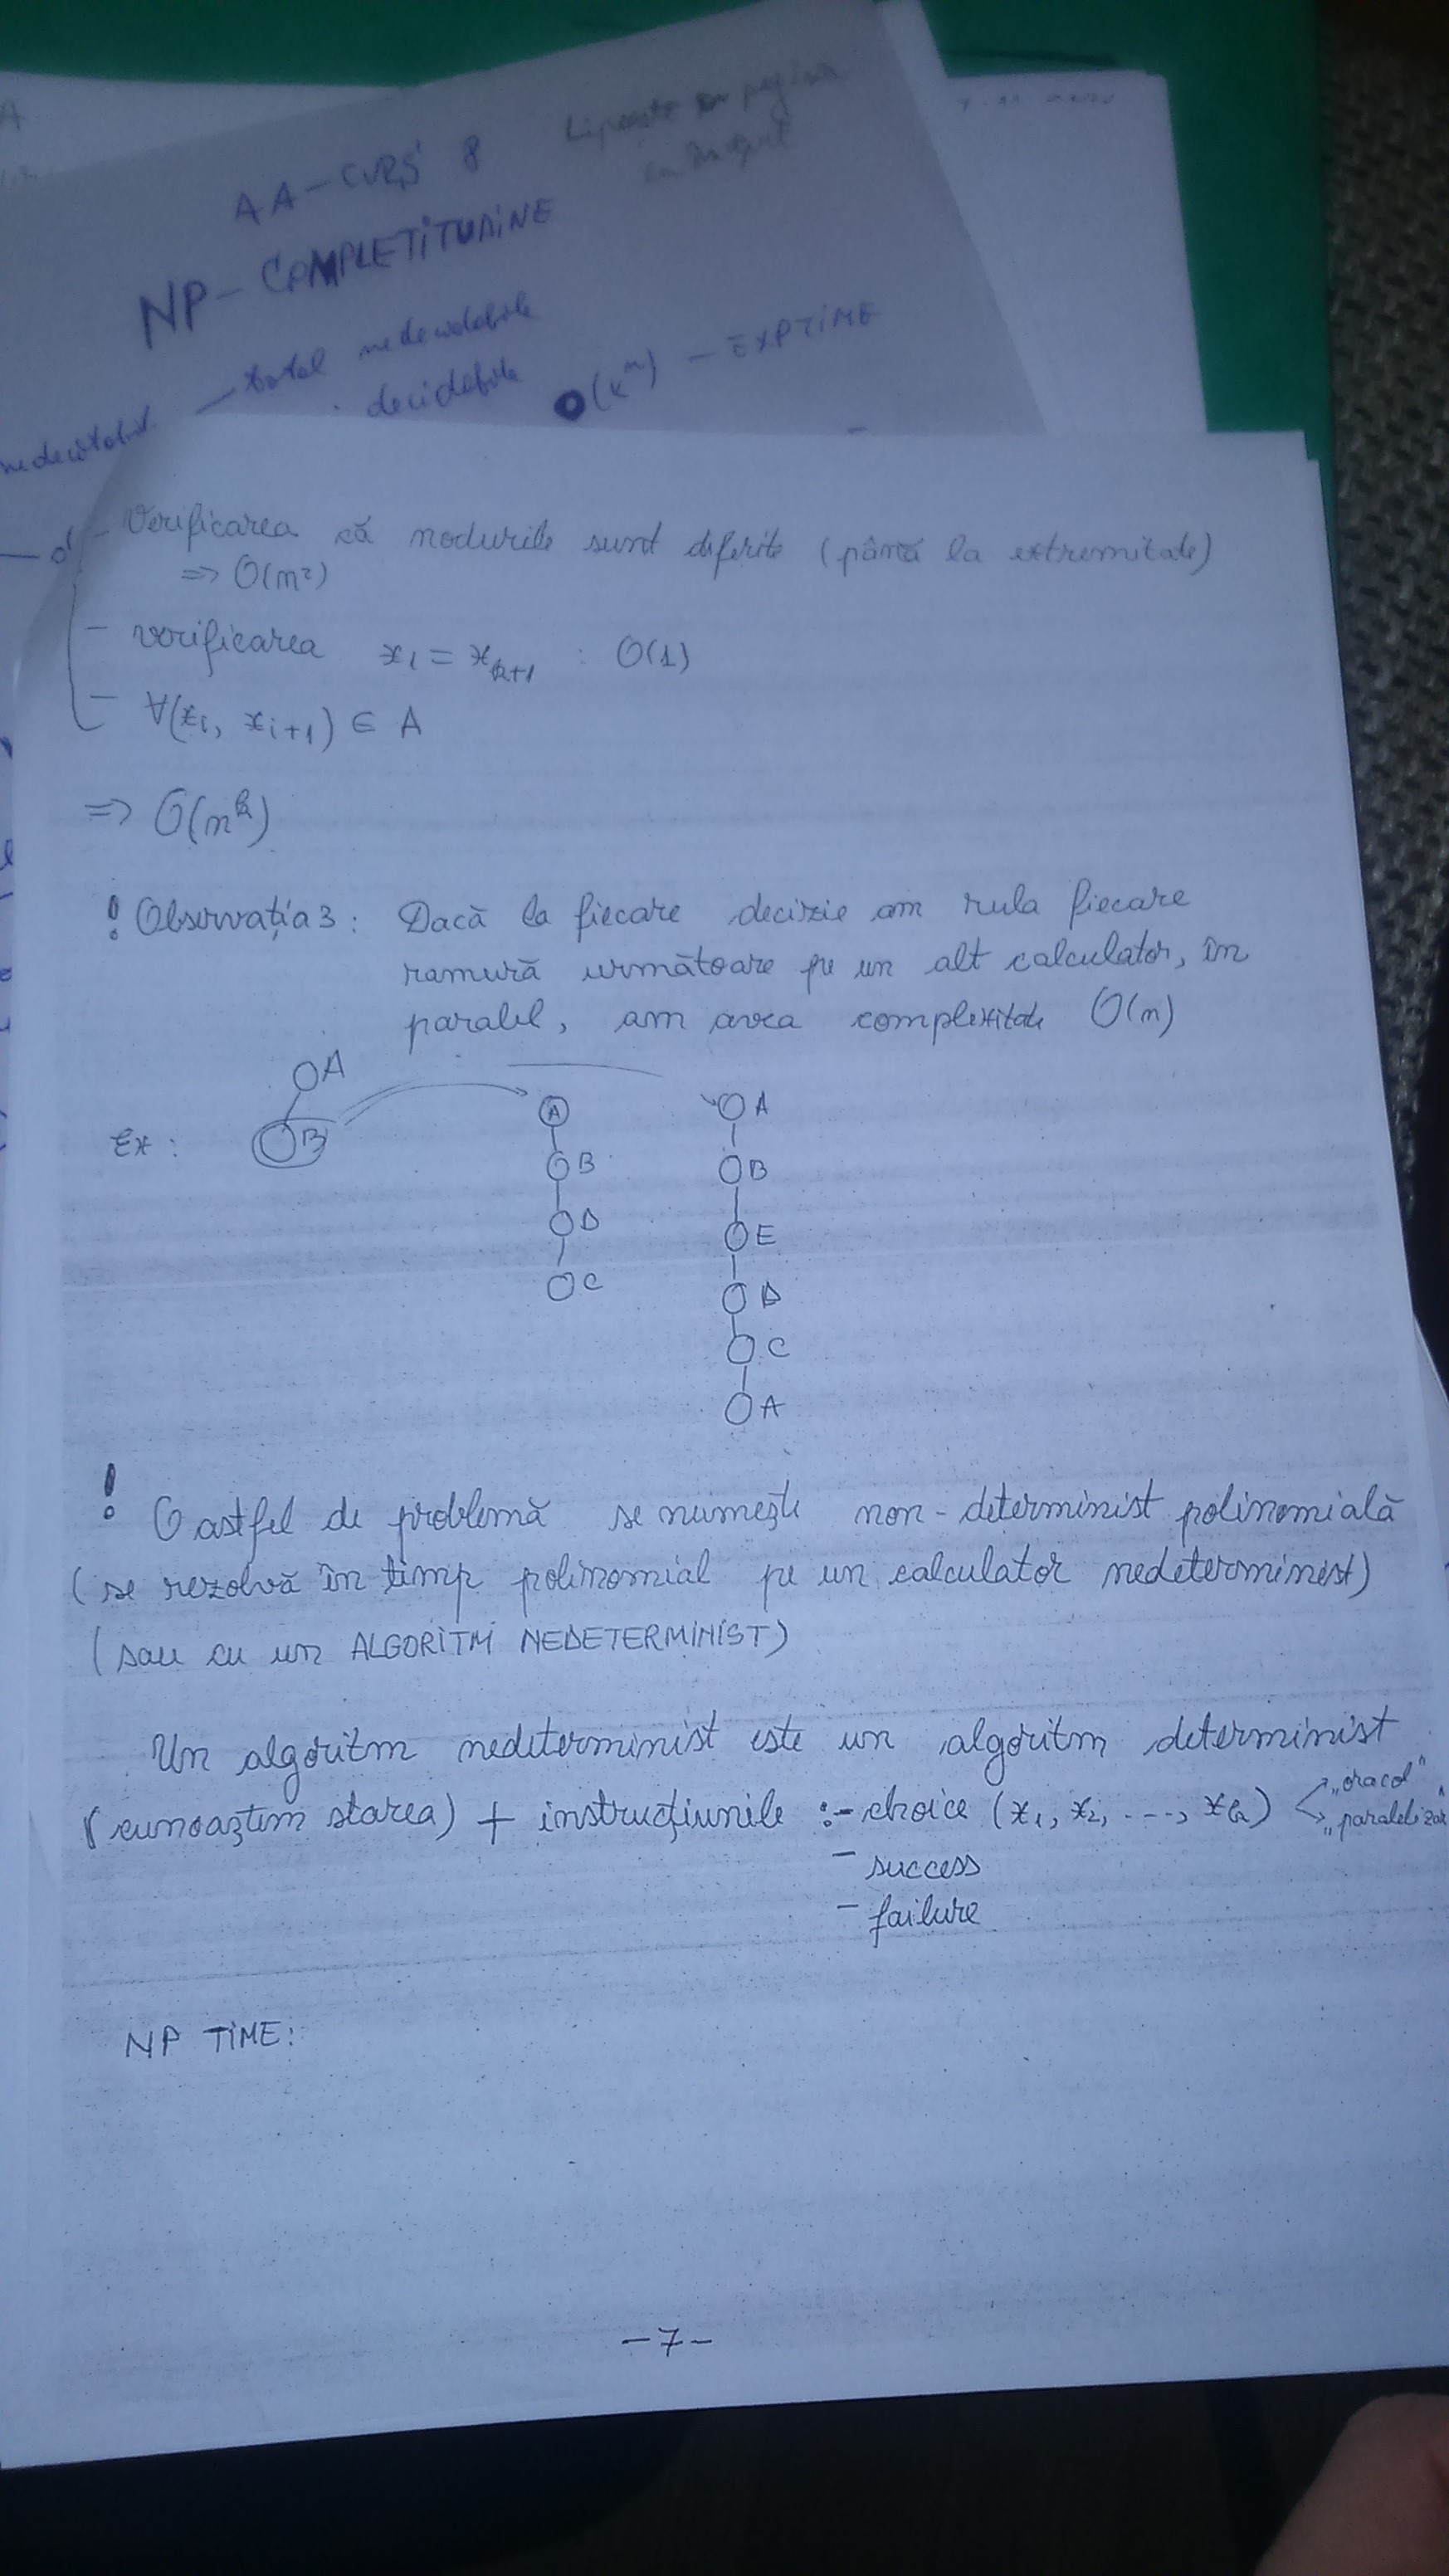 AA - CURS 8
NP - COMPLETITUDINE
total nedecidabile
decidabile
O(k^n) - EXPTIME
- Verificarea că nodurile sunt diferite (până la extremitate)
=> O(n²)
- verificarea x₁ = xₖ₊₁ : O(1)
- ∀(xᵢ, xᵢ₊₁) ∈ A
=> O(n^k)
! Observația 3 : Dacă la fiecare decizie am rula fiecare
ramură următoare pe un alt calculator, în
paralel, am avea complexitate O(n)
A
Ex : B
A
B
D
C
A
B
E
D
C
A
! O astfel de problemă se numește non-determinist polinomială
(se rezolvă în timp polinomial pe un calculator nedeterminist)
(sau cu un ALGORITM NEDETERMINIST)
Un algoritm nedeterminist este un algoritm determinist
(cunoaștem starea) + instrucțiunile :- choice (x₁, x₂, ..., xₖ)
„oracol"
- success
- failure
NP TIME:
-7-